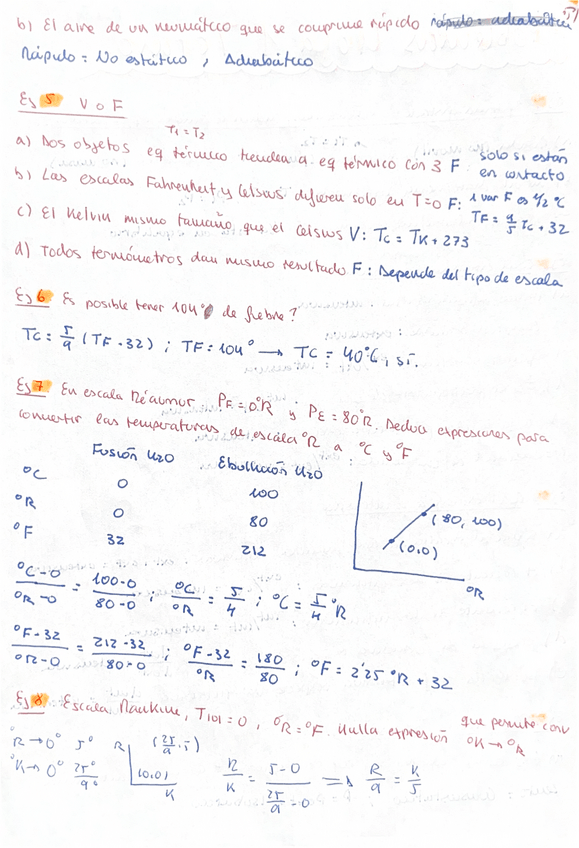 b) El aire de un neumático que se comprime rápido
Rápido = No estático ; Adiabático
Ej 5 V o F
T₁ = T₂
a) Dos objetos eq térmico tienden a eq térmico con 3 F solo si están en contacto
b) Las escalas Fahrenheit y Celsius difieren solo en T=0 F: 1 var F es 1/2 °C
TF = 9/5 Tc + 32
c) El Kelvin mismo tamaño que el Celsius V: Tc = TK + 273
d) Todos termómetros dan mismo resultado F: Depende del tipo de escala
Ej 6 Es posible tener 104° de fiebre?
Tc = 5/9 (TF - 32) ; TF = 104° → Tc = 40°C, sí.
Ej 7 En escala Réaumur PF = 0°R y PE = 80°R. Deduce expresiones para
convertir las temperaturas de escala °R a °C y °F
Fusión H₂O Ebullición H₂O
°C 0 100
°R 0 80
°F 32 212
(80, 100)
(0,0)
°R
°C-0/°R-0 = 100-0/80-0 ; °C/°R = 5/4 ; °C = 5/4 °R
°F-32/°R-0 = 212-32/80-0 ; °F-32/°R = 180/80 ; °F = 2'25 °R + 32
Ej 8 Escala Rankine, T₍₀₎ = 0, °R = °F. Halla expresión que permite conv
°K → °R
°R → 0° 5° R (25/9, 5)
°K → 0° 25/9° (0,0) K
R/K = 5-0/25/9-0 ⇒ R/9 = K/5